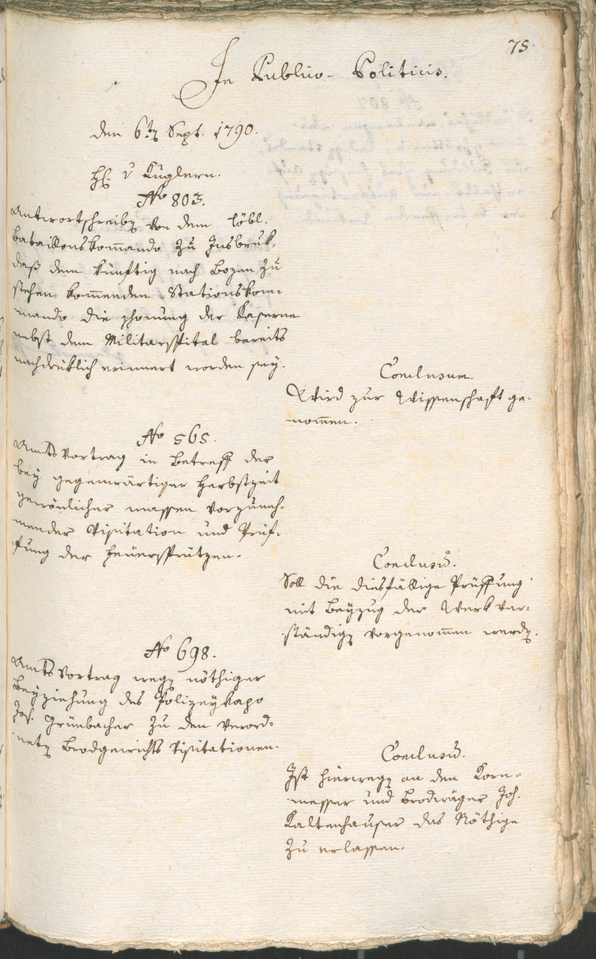 75.
In Publico-Politicis.
den 6ten Sept. 1790.
H: v Kuglern.
No 803.
Antwortschreiben von dem löbl.
Bataillonskom̅ando zu Insbruk,
daß dem künftig nach Bozen zu
stehen kom̅enden Stationskom̅-
mando die Schonung der Kaserne
nebst dem Militarspital bereits
nachdrüklich erinnert worden sey.
Conclusum.
Wird zur Wissenschaft ge-
nom̅en.
No 565.
Amts Vortrag in Betreff der
bey gegenwärtiger Herbstzeit
gewönlicher massen vorzuneh-
mender Visitation und Prüf-
fung der Feuerspritzen.
Conclusū.
Soll die diesfällige Prüffung
mit Beyzug der Werkver-
ständigen vorgenom̅en werden.
No 698.
Amts Vortrag wegen nöthiger
Beyziehung des Polizeykapo
Jos. Grünbacher zu den verord-
neten Brodgewichts Visitationen.
Conclusū.
Ist hierwegen an den Korn-
messer und Brodwäger Joh.
Kaltenhauser das Nöthige
zu erlassen.